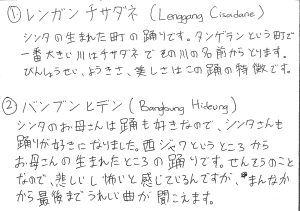 ① レンガン チサダネ (Lenggang Cisadane)
シンタの生まれた町の踊りです。タンゲランという町で
一番大きい川はチサダネでその川の名前からとります。
びんしょうせい、ようきさ、美しさはこの踊の特徴です。
② バンブン ヒデン (Bangbung Hideung)
シンタのお母さんは踊も好きなので、シンタさんも
踊りが好きになりました。西ジャワというところから
お母さんの生まれたところの踊りです。せんぞうのこと
なので、悲しいし怖いと感じているんですが、まんなか
から最後までうれしい曲が聞こえます。